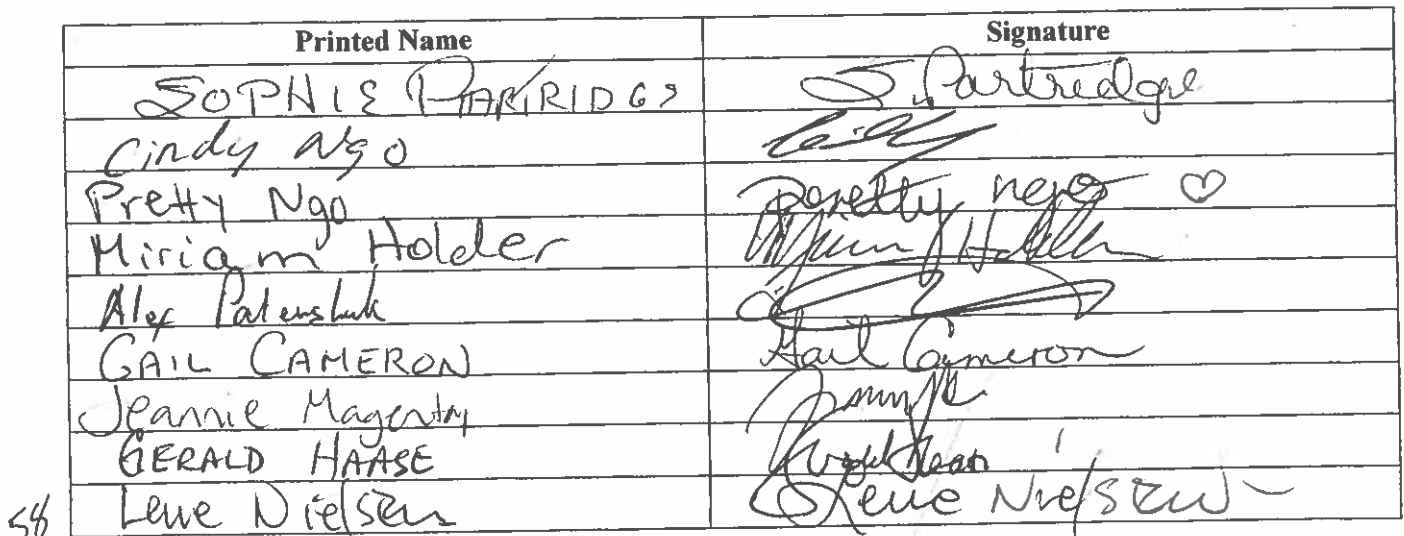 Printed Name Signature
SOPHIE PARTRIDGE S. Partredge
Cindy Ngo
Pretty Ngo pretty ngo ♡
Miriam Holder
Alex
GAIL CAMERON Gail Cameron
Jeannie
GERALD HAASE
Lene Nielsen Lene Nielsen
58